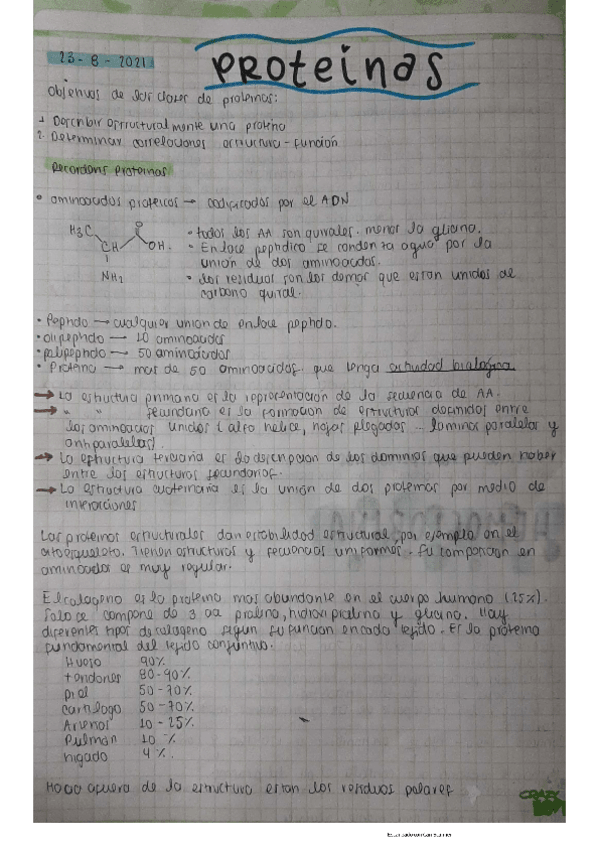 23-8-2021
PROTEINAS
Objetivos de las clases de proteinas:
1 Describir estructuralmente una proteina
2. Determinar correlaciones estructura-función
Recordemos proteinas
• aminoacidos proteicos → codificados por el ADN
H3C
O
CH
OH.
NH2
• todos los AA son quirales. menos la glicina.
• Enlace peptidico se condenza agua por la
unión de dos aminoacidos.
• los residuos son los demas que estan unidos de
carbono quiral.
• Peptido → cualquier union de enlace peptido.
• olipeptido → 10 aminoacidos
• polipeptido → 50 aminoacidos
• Proteina → mas de 50 aminoacidos. que tenga actividad biologica
→ La estructura primaria es la representación de la secuencia de AA.
→ " " secundaria es la formacion de estructuras definidas entre
los aminoacidos unidos (alfa helice, hojas plegadas ... laminas paralelas y
antiparalelas).
→ La estructura terciaria es la descripcion de los dominios que pueden haber
entre las estructuras secundarias.
→ La estructura cuaternaria es la unión de dos proteinas por medio de
interacciones
Las proteinas estructurales dan estabilidad estructural, por ejemplo en el
citoesqueleto. Tienen estructuras y secuencias uniformes. Su composicion en
aminoacidos es muy regular.
El colageno es la proteina mas abundante en el cuerpo humano (25%).
Solo se compone de 3 aa prolina, hidroxiprolina y glicina. Hay
diferentes tipos de colageno segun su funcion en cada tejido. Es la proteina
fundamental del tejido conjuntivo.
Hueso 90%
tendones 80-90%
piel 50-70%
cartilago 50-70%
Arterias 10-25%
Pulmon 10%
higado 4%.
Hacia afuera de la estructura estan los residuos polares
CRAZY
Escaneado con CamScanner